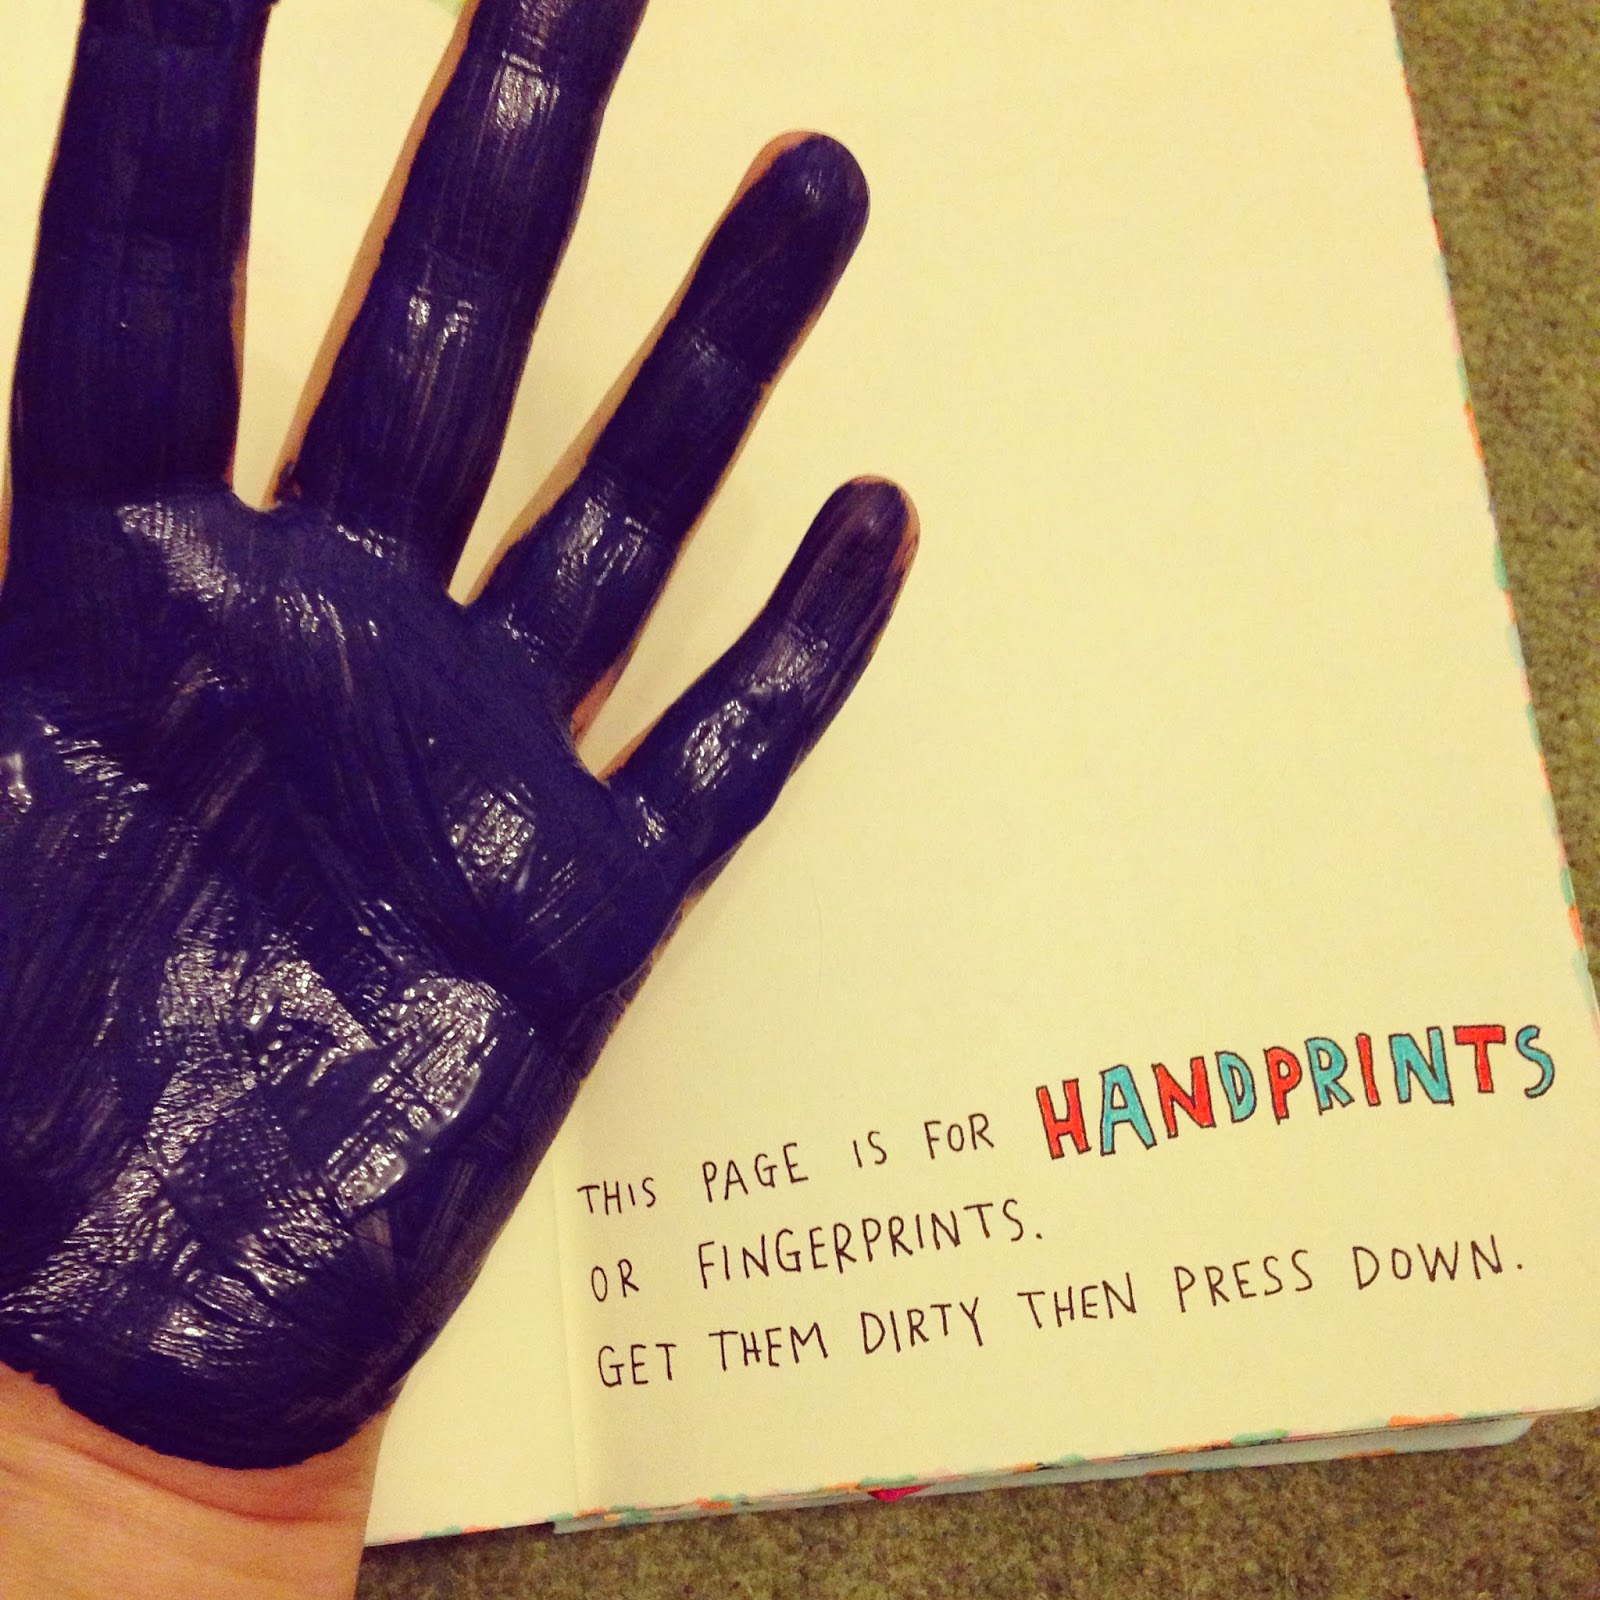 THIS PAGE IS FOR HANDPRINTS
OR FINGERPRINTS.
GET THEM DIRTY THEN PRESS DOWN.